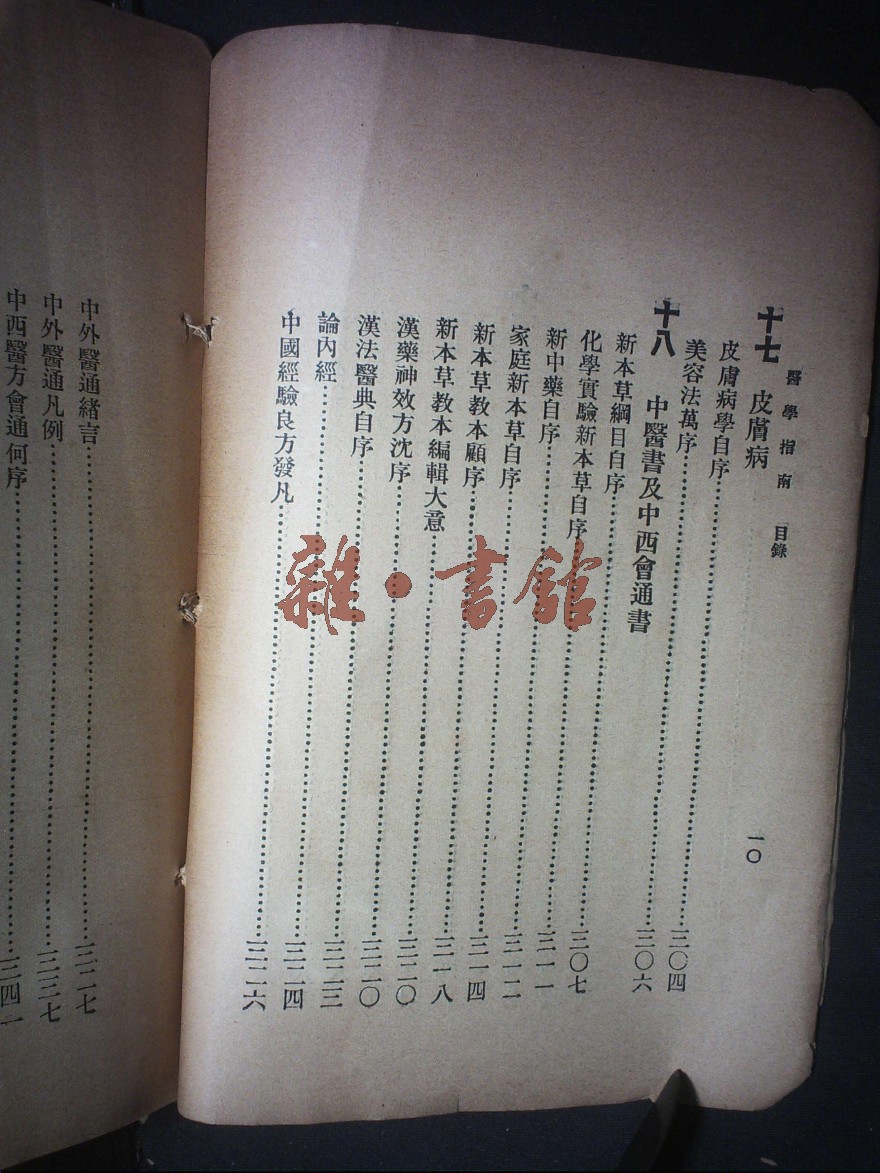 醫學指南 目錄 一〇
十七 皮膚病
皮膚病學自序……三〇四
美容法萬序……三〇六
十八 中醫書及中西會通書
新本草綱目自序……三〇七
化學實驗新本草自序……三一一
新中藥自序……三一二
家庭新本草自序……三一四
新本草教本顧序……三一八
新本草教本編輯大意……三二〇
漢藥神效方沈序……三二〇
漢法醫典自序……三二三
論內經……三二四
中國經驗良方發凡……三二六
中外醫通緒言……三二七
中外醫通凡例……三三七
中西醫方會通何序……三四一
雜·書館